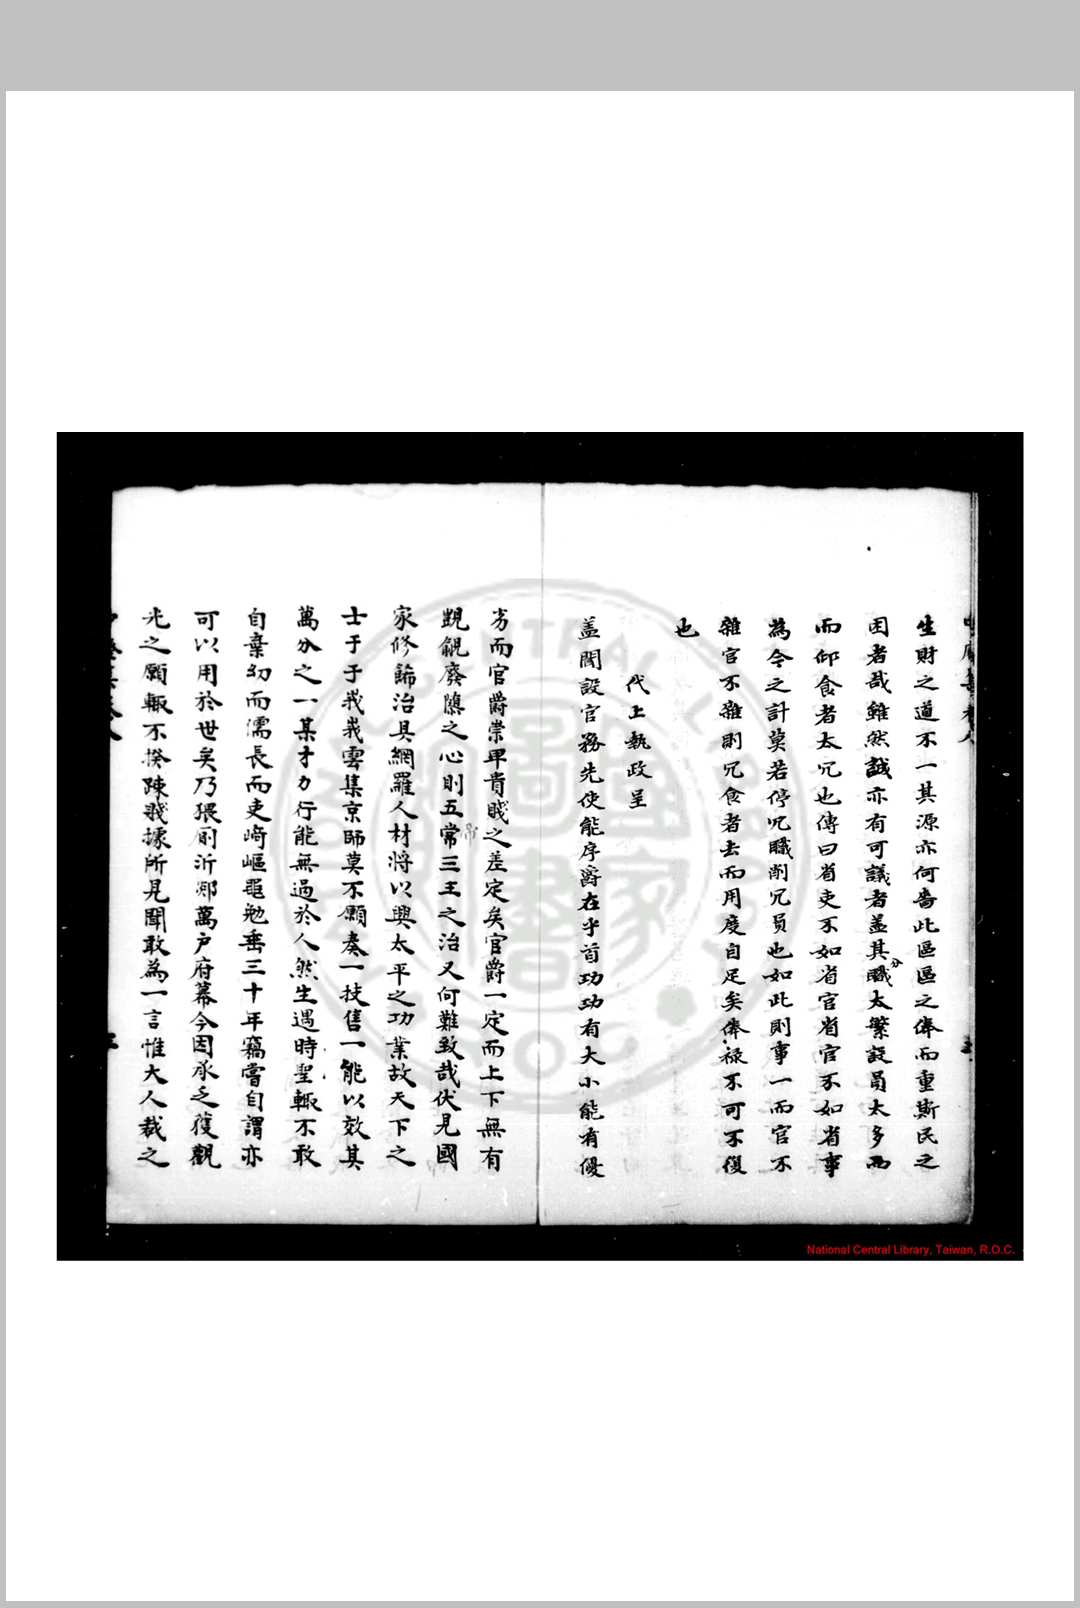 生財之道不一其源亦何嗇此區區之俸而重斯民之
困者哉雖然誠亦有可議者蓋其職分太繁設員太多而
而仰食者太冗也傳曰省吏不如省官省官不如省事
為今之計莫若停冗職削冗員也如此則事一而官不
雜官不雜則冗食者去而用度自足矣俸祿不可不復
也
代上執政呈
蓋聞設官務先使能序爵在乎首功功有大小能有優
劣而官爵崇卑貴賤之差定矣官爵一定而上下無有
覬覦廢隳之心則五常三王之治又何難致哉伏見國
帝
家修飾治具網羅人材將以興太平之功業故天下之
士于于峩峩雲集京師莫不願奏一技售一能以效其
萬分之一某才力行能無過於人然生遇時聖輙不敢
自棄幼而儒長而吏崎嶇黽勉垂三十年竊嘗自謂亦
可以用於世矣乃猥廁沂鄆萬戶府幕今因承乏獲觀
光之願輙不揆陳我據所見聞敢為一言惟大人裁之
National Central Library, Taiwan, R.O.C.